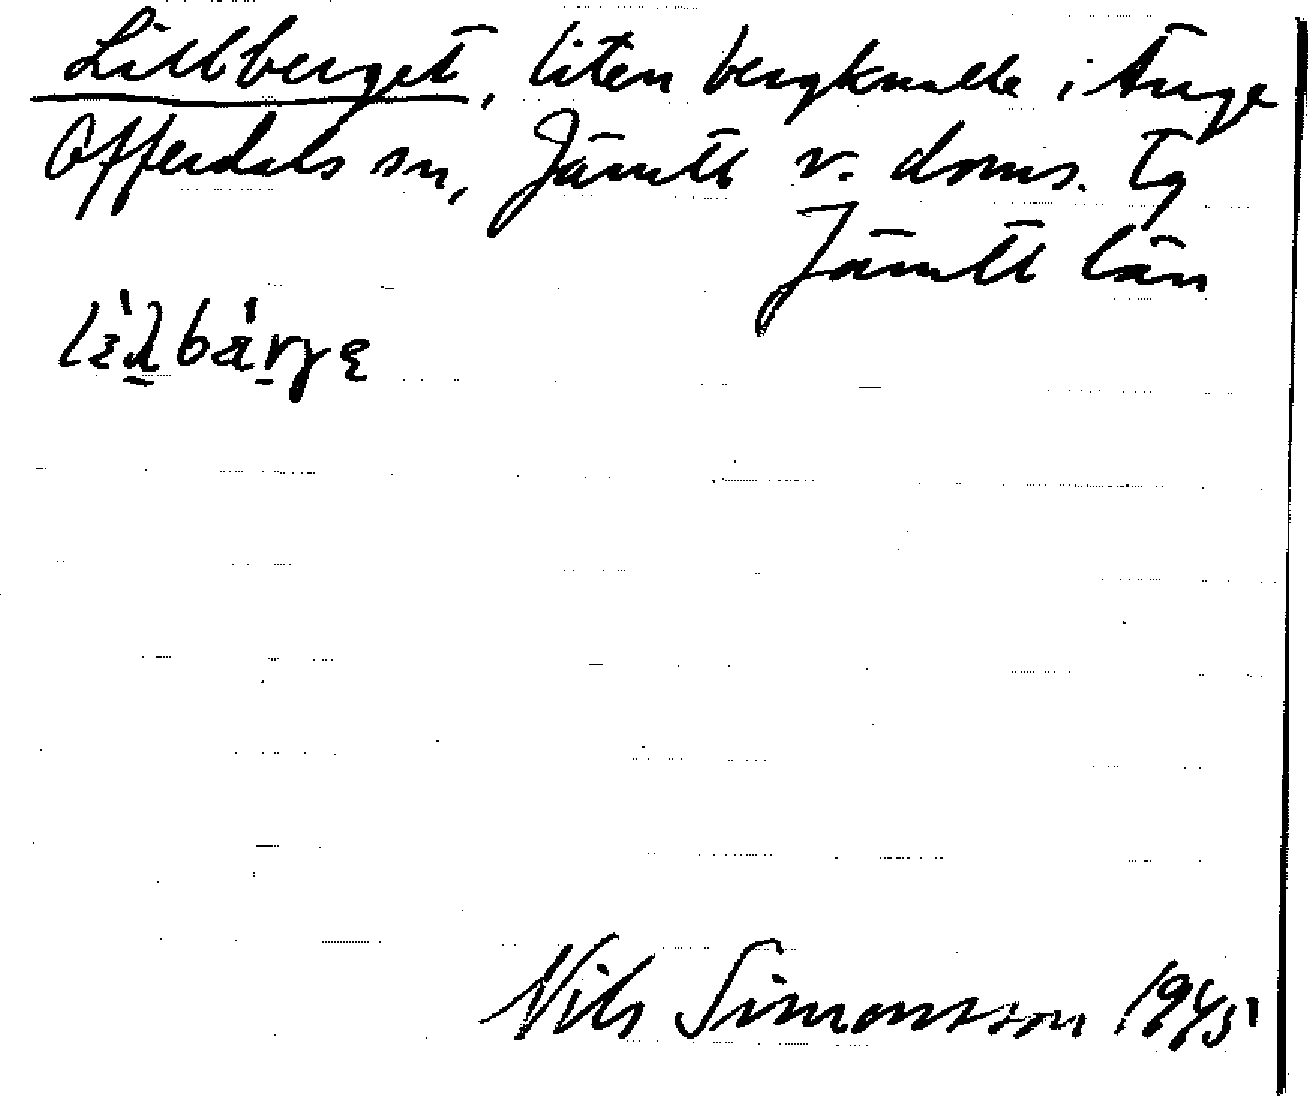 Lillberget, liten bergknalle i Ånge
Offerdals sn, Jämtl v. doms. tg
Jämtl län
Nils Simonsson 1945